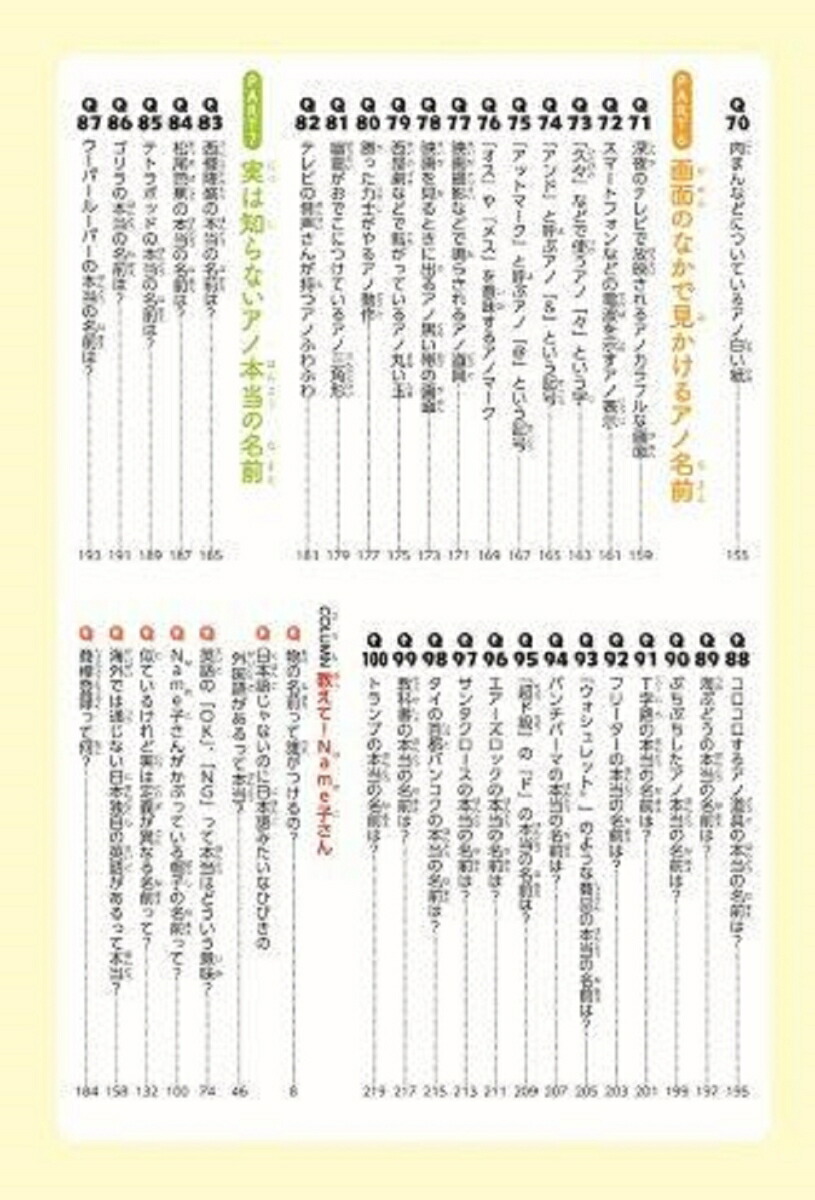 Q70 肉まんなどについているアノ白い紙 155
PART 6 画面のなかで見かけるアノ名前
Q71 深夜のテレビで放映されるアノカラフルな画面 159
Q72 スマートフォンなどの電波を示すアノ表示 161
Q73 「久々」などで使うアノ「々」という字 163
Q74 「アンド」と呼ぶアノ「&」という記号 165
Q75 「アットマーク」と呼ぶアノ「@」という記号 167
Q76 「オス」や「メス」を意味するアノマーク 169
Q77 映画撮影などで鳴らされるアノ道具 171
Q78 映画を見るときに出るアノ黒い帯の画面 173
Q79 西部劇などで転がっているアノ丸い玉 175
Q80 勝った力士がやるアノ動作 177
Q81 幽霊がおでこにつけているアノ三角形 179
Q82 テレビの音声さんが持つアノふわふわ 181
PART 7 実は知らないアノ本当の名前
Q83 西郷隆盛の本当の名前は? 185
Q84 松尾芭蕉の本当の名前は? 187
Q85 テトラポッドの本当の名前は? 189
Q86 ゴリラの本当の名前は? 191
Q87 ウーパールーパーの本当の名前は? 193
Q88 コロコロするアノ道具の本当の名前は? 195
Q89 海ぶどうの本当の名前は? 197
Q90 ぷちぷちしたアノ本当の名前は? 199
Q91 T字路の本当の名前は? 201
Q92 フリーターの本当の名前は? 203
Q93 『ウォシュレット®』のような商品の本当の名前は? 205
Q94 パンチパーマの本当の名前は? 207
Q95 「超ド級」の「ド」の本当の名前は? 209
Q96 エアーズロックの本当の名前は? 211
Q97 サンタクロースの本当の名前は? 213
Q98 タイの首都バンコクの本当の名前は? 215
Q99 教科書の本当の名前は? 217
Q100 トランプの本当の名前は? 219
COLUMN 教えて!Name子さん
Q 物の名前って誰がつけるの? 8
Q 日本語じゃないのに日本語みたいなひびきの
外国語があるって本当? 46
Q 英語の「OK」、「NG」って本当はどういう意味? 74
Q Name子さんがかぶっている帽子の名前って? 100
Q 似ているけれど実は定義が異なる名前って? 132
Q 海外では通じない日本独自の英語があるって本当? 158
Q 商標登録って何? 184